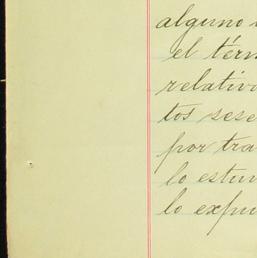 alguno
el térm
relativ
tos sese
por tra
lo estu
lo expu